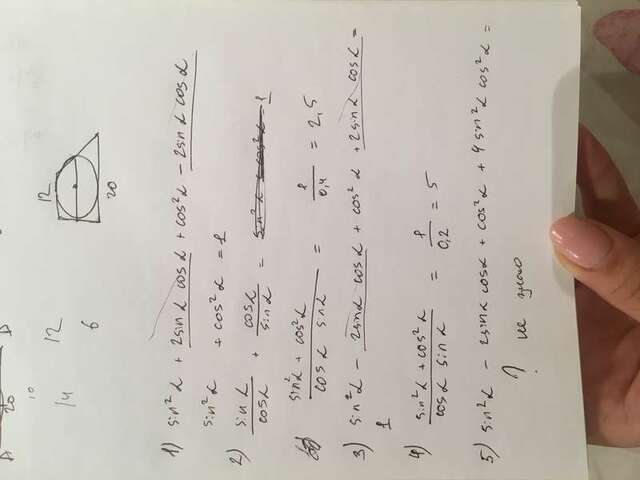 A 20 D
10
14 12
6
12
20
1) sin²α + 2sinα cosα + cos²α - 2sinα cosα
sin²α + cos²α = 1
2) sinα/cosα + cosα/sinα = 1
sin²α + cos²α / cosα sinα = 1/0,4 = 2,5
3) sin²α - 2sinα cosα + cos²α + 2sinα cosα =
1
4) sin²α + cos²α / cosα sinα = 1/0,2 = 5
5) sin²α - 2sinα cosα + cos²α + 4sin²α cos²α =
? не знаю